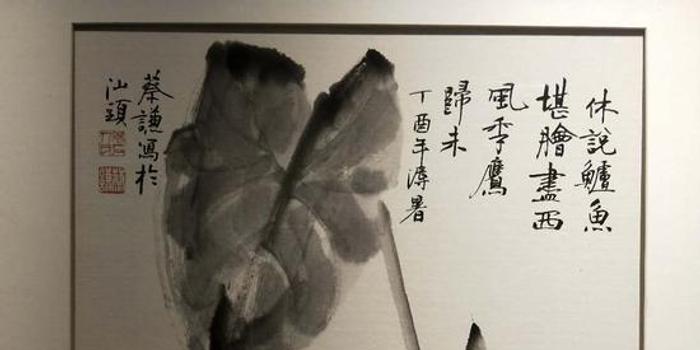 休說鱸魚
堪膾盡西
風季鷹
歸未
丁酉年溽暑
蔡謙寫於
汕頭